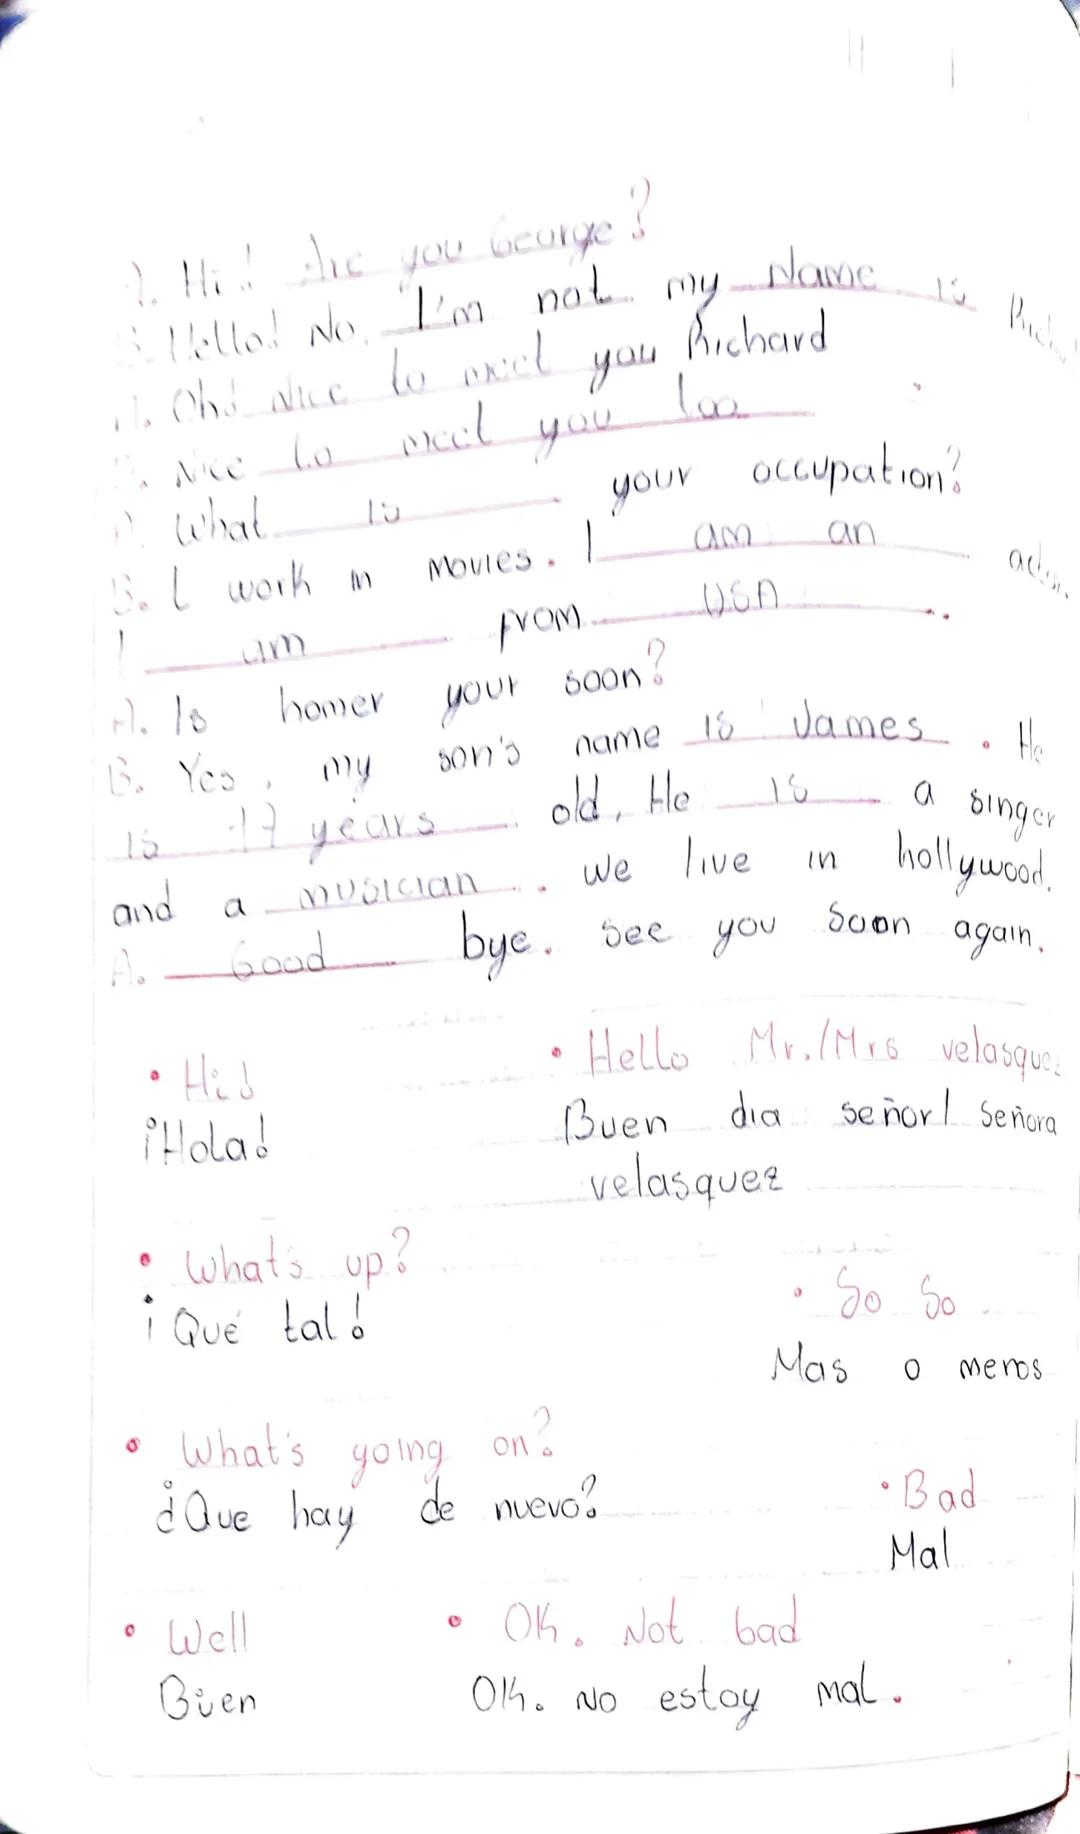 A. Hi! Are you George?
B. Hello! No, I'm not my Name is
A. Oh! Nice to meet you Richard
B. Nice to meet you too
A. What is your occupation?
B. I work in Movies. I am an
I am from USA.
A. Is homer your soon?
B. Yes, my son's name is James. He
is 17 years old, He is a singer
and a musician. We live in hollywood.
A. Good bye. See you soon again.
• Hi!
¡Hola!
• Hello Mr./Mrs velasquez
Buen dia señor/ señora
velasquez
• What's up?
¡Qué tal!
• So So
Mas o menos
• What's going on?
¿Que hay de nuevo?
• Bad
Mal
• Well
Bien
• OK. Not bad
OK. No estoy mal.